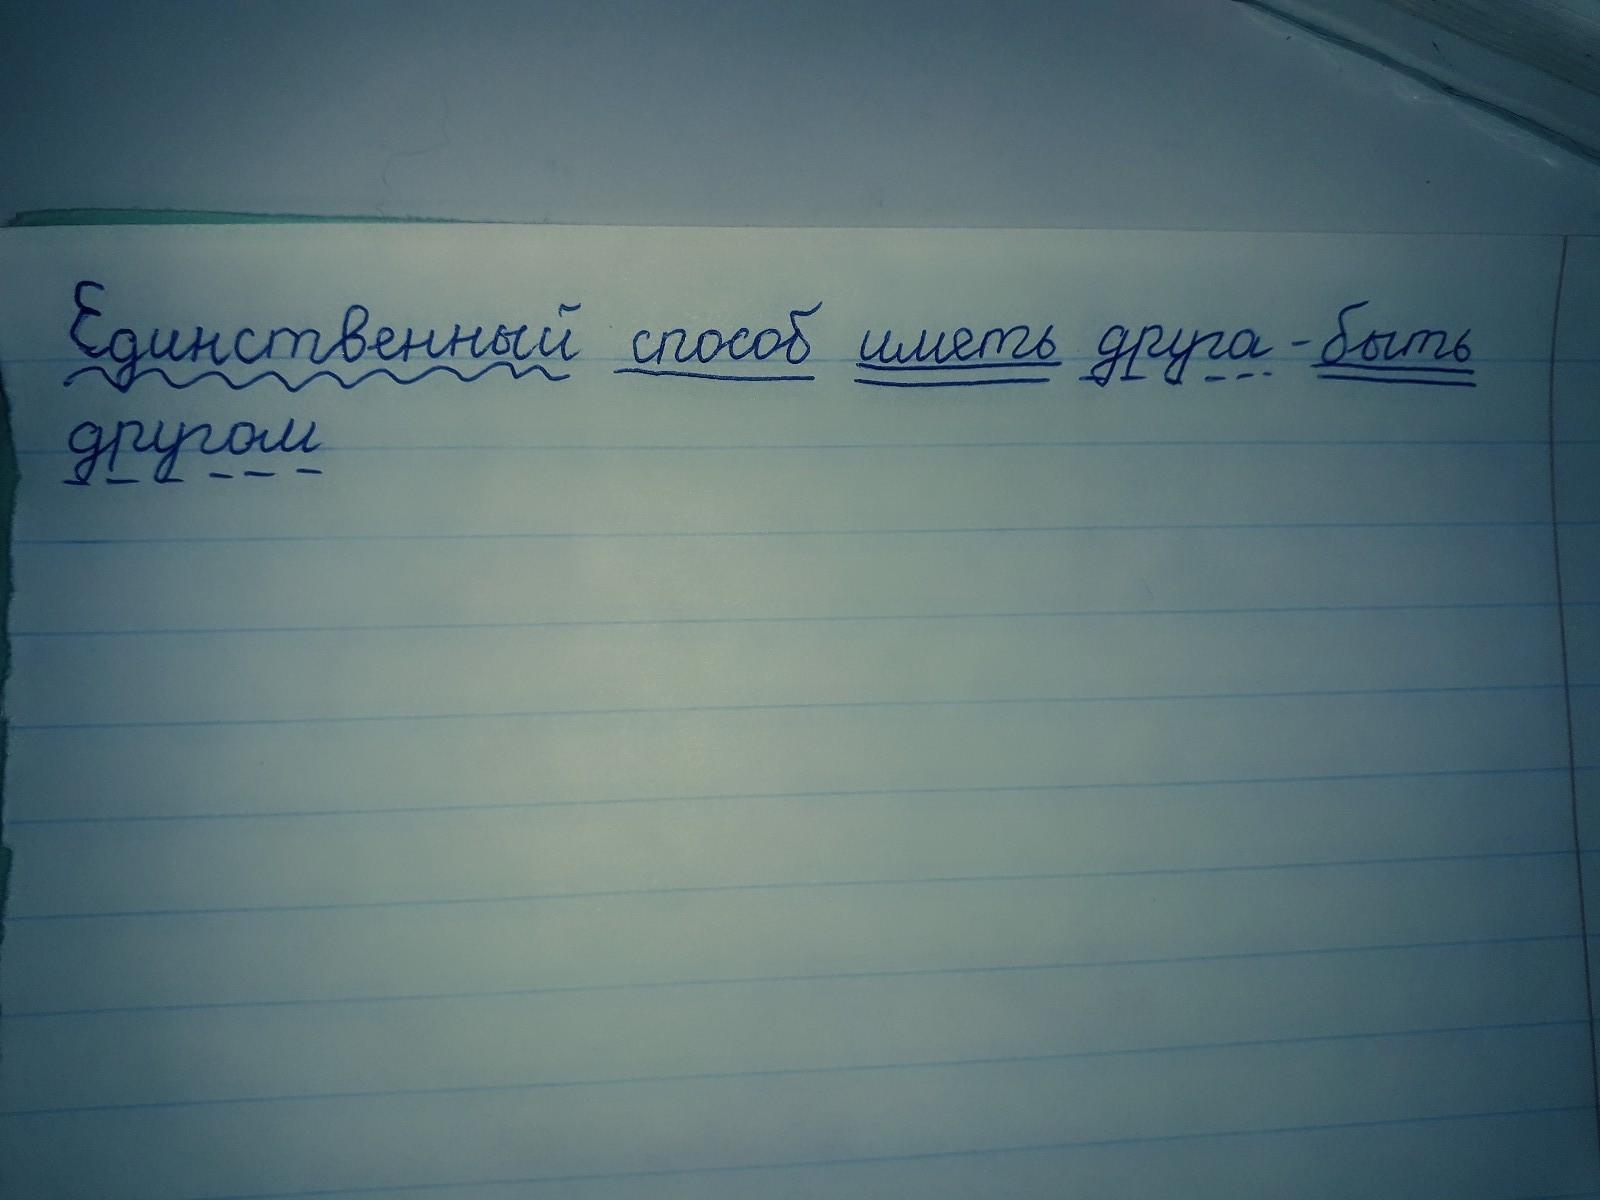 Единственный способ иметь друга - быть
другом